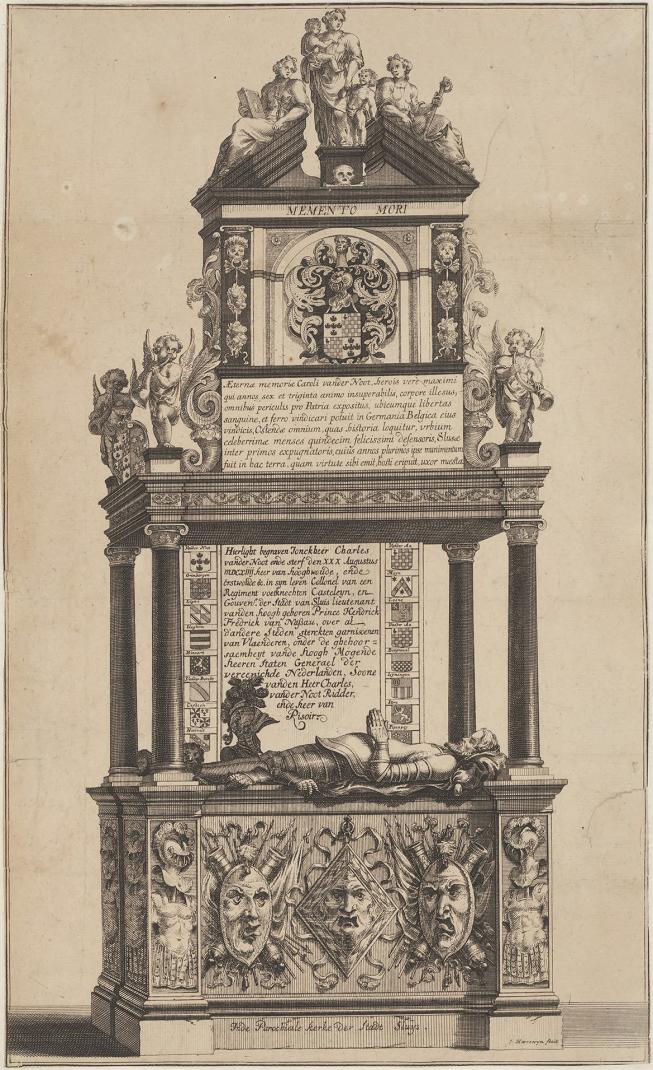 MEMENTO MORI
Æternæ memoriæ Caroli vander Noot, herois vere maximi
qui annos sex et triginta animo insuperabilis, corpore illesus,
omnibus periculis pro Patria expositus, ubicumque libertas
sanguine, et ferro vindicari potuit in Germania Belgica eius
vindicis, Ostendæ omnium, quas historia loquitur, urbium
celeberrimæ menses quindecim felicissimi defensoris, Slusæ
inter primos expugnatoris, cuius annos plurimos ipse munimentum
fuit in hac terra, quam virtute sibi emit, hosti eripuit, uxor mæsta
Hierlight begraven Jonckheer Charles
vander Noot ende sterf den XXX Augustus
heer van hooghwoude, ende
erstwolde &. in syn leven Collonel van een
Regiment voetknechten Casteleyn, en
Gouvenr. der Stadt van Sluis lieutenant
vanden hoogh geboren Prince Hendrick
Fredrick van Naßau, over al
dandere Steden stercken garnisoenen
van Vlaenderen, onder de ghehoor=
saemheyt vande Hoogh Mogende
Heeren Staten Generael der
vereenichde Nederlanden, Soone
vanden Heer Charles,
vander Noot Ridder,
ende heer van
Risoir
Inde Parochiale kerke der Stadt Sluys.
J. Harrewyn fecit